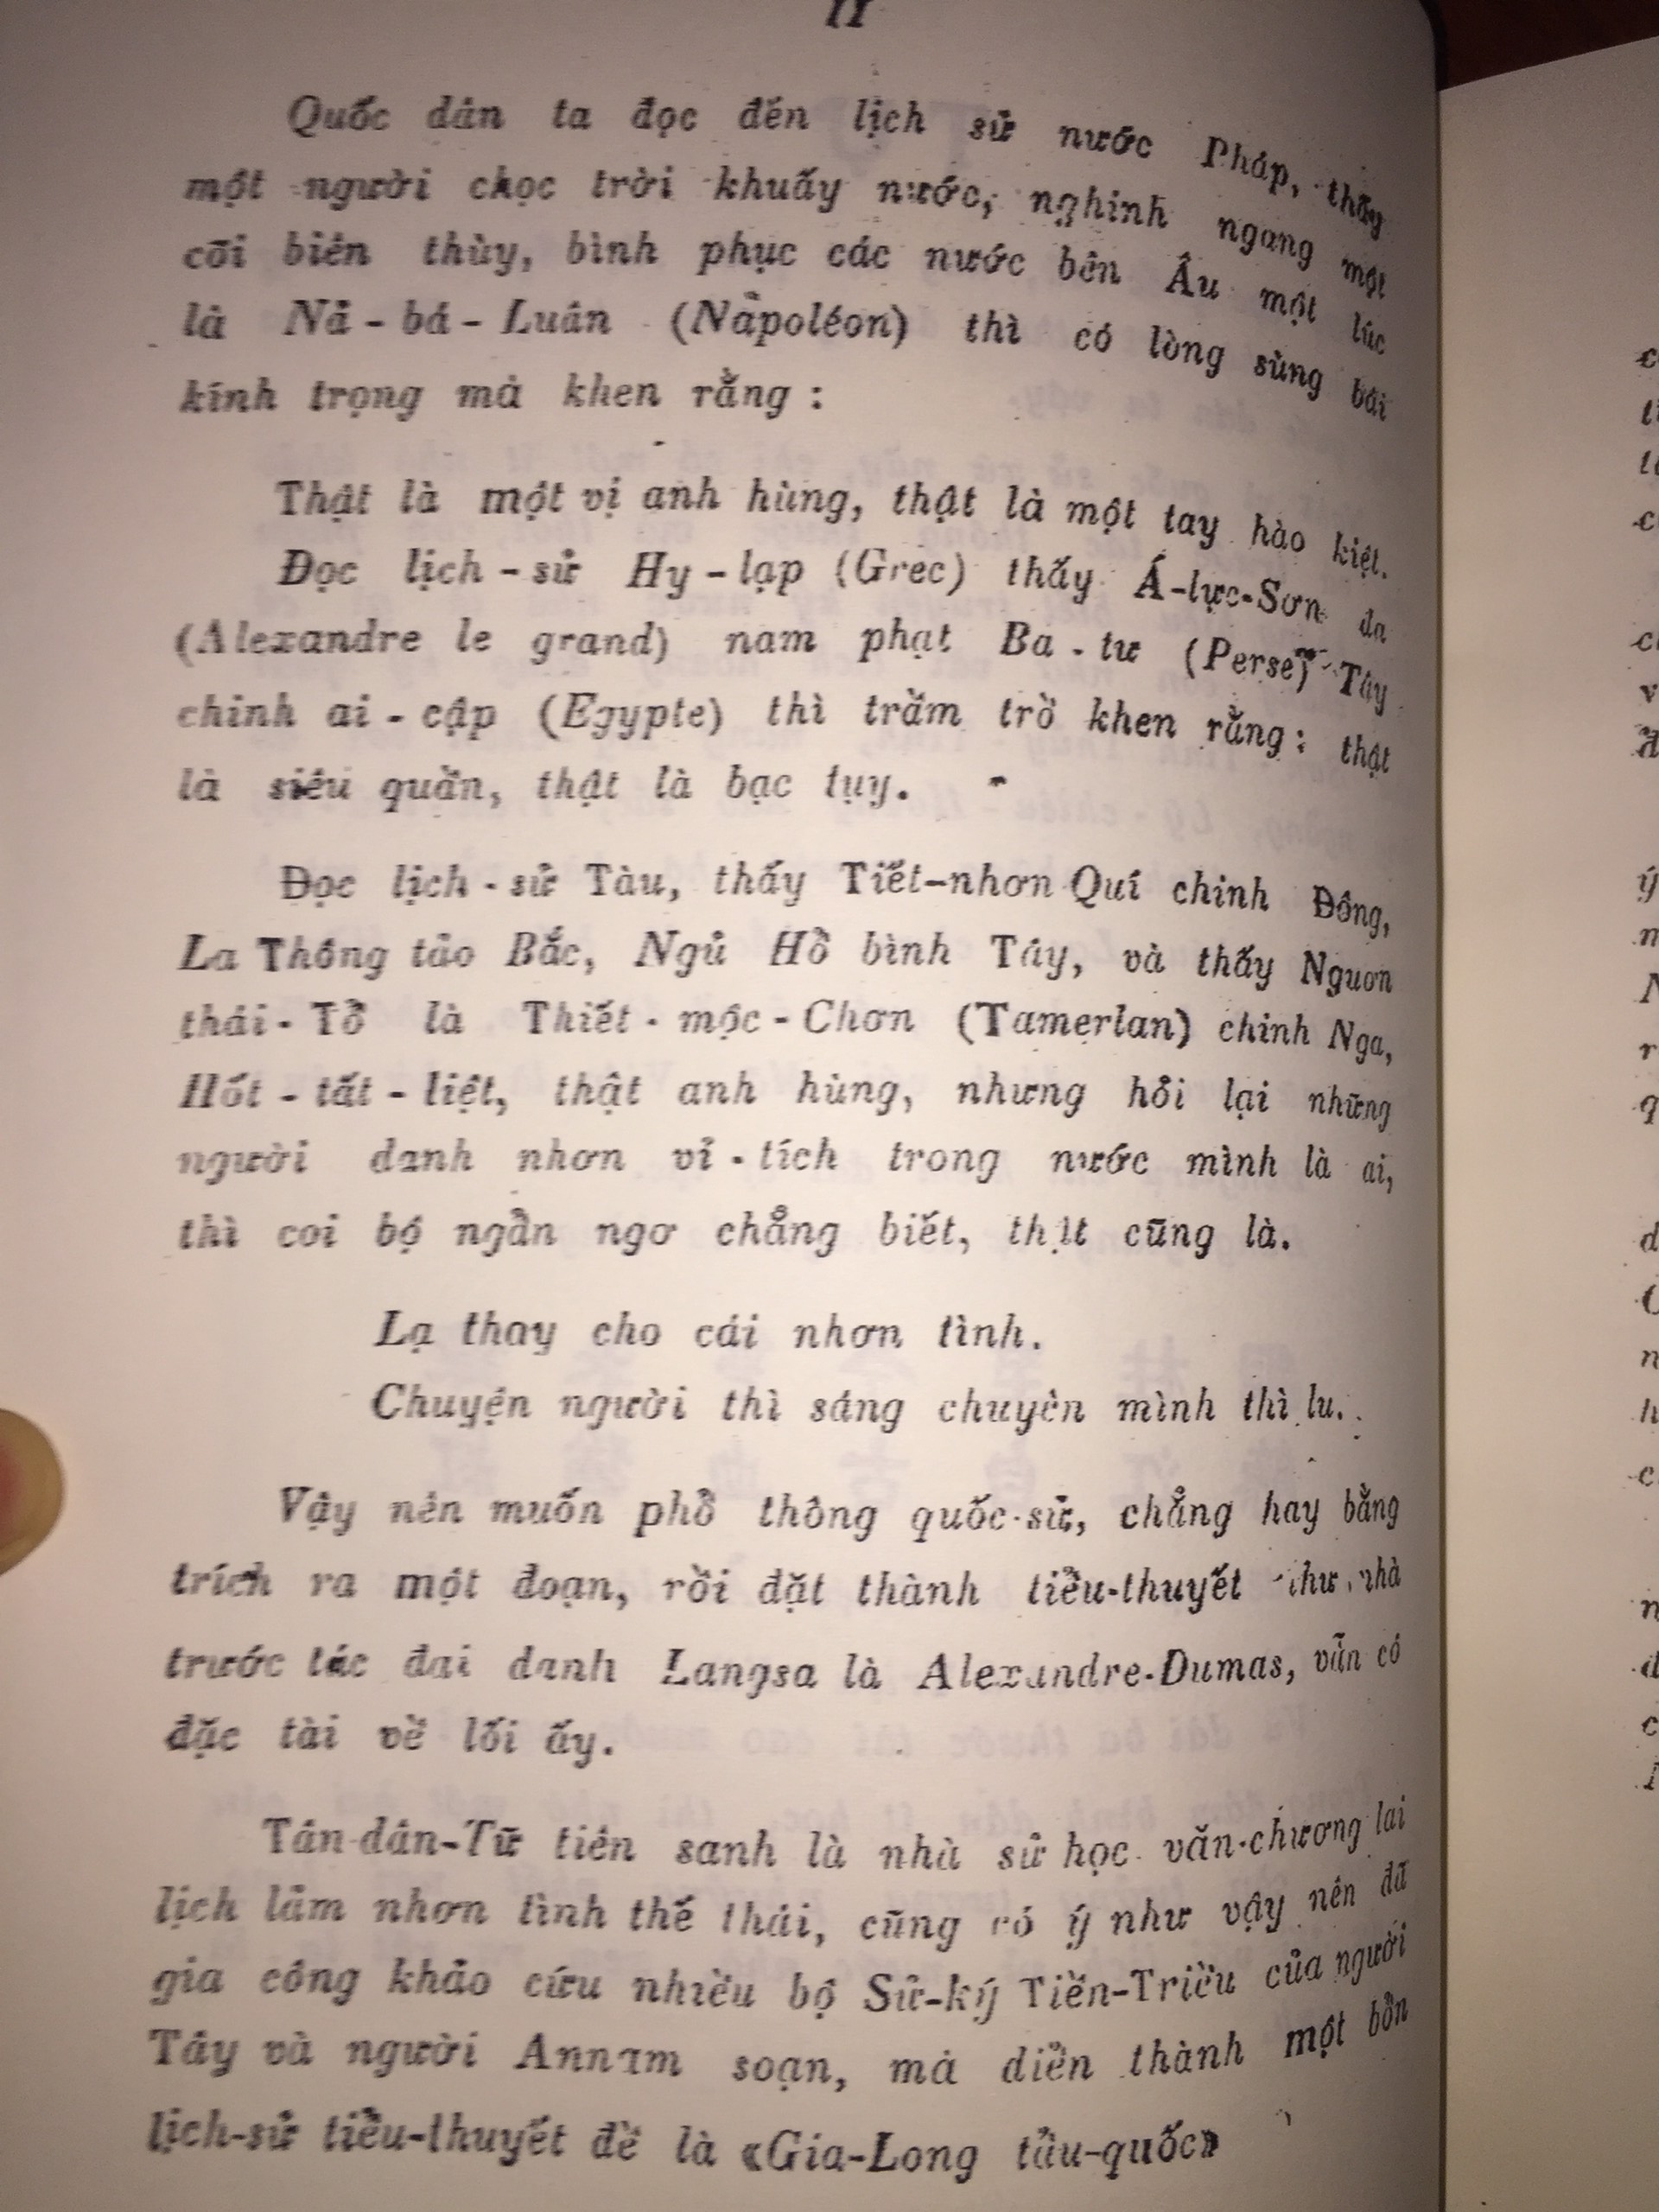 II
Quốc dân ta đọc đến lịch sử nước Pháp, thấy
một người chọc trời khuấy nước, nghinh ngang một
cõi biên thùy, bình phục các nước bên Âu một lúc
là Nã - bá - Luân (Nãpoléon) thì có lòng sùng bái
kính trọng mà khen rằng :
Thật là một vị anh hùng, thật là một tay hào kiệt.
Đọc lịch - sử Hy - lạp (Grec) thấy Á-lực-Sơn đa
(Alexandre le grand) nam phạt Ba - tư (Perse) Tây
chinh ai - cập (Egypte) thì trầm trồ khen rằng : thật
là siêu quần, thật là bạc tụy.
Đọc lịch - sử Tàu, thấy Tiết-nhơn Quí chinh Đông,
La Thông tảo Bắc, Ngũ Hổ bình Tây, và thấy Nguơn
thái - Tổ là Thiết - mộc - Chơn (Tamerlan) chinh Nga,
Hốt - tất - liệt, thật anh hùng, nhưng hỏi lại những
người danh nhơn vĩ - tích trong nước mình là ai,
thì coi bộ ngẩn ngơ chẳng biết, thật cũng là.
Lạ thay cho cái nhơn tình.
Chuyện người thì sáng chuyện mình thì lu.
Vậy nên muốn phổ thông quốc-sử, chẳng hay bằng
trích ra một đoạn, rồi đặt thành tiểu-thuyết như nhà
trước tác đại danh Langsa là Alexandre-Dumas, vẫn có
đặc tài về lối ấy.
Tân-dân-Tử tiên sanh là nhà sử học văn-chương lai
lịch lãm nhơn tình thế thái, cũng có ý như vậy nên đã
gia công khảo cứu nhiều bộ Sử-ký Tiền-Triều của người
Tây và người Annam soạn, mà diễn thành một bổn
lịch-sử tiểu-thuyết đề là «Gia-Long tẩu-quốc»